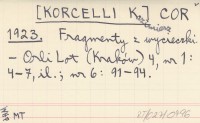 [KORCELLI K.] COR
1923. Fragmenty z wycieczki
– Orli Lot (Kraków) 4, nr 1:
4-7, il.; nr 6: 91-94.
MT